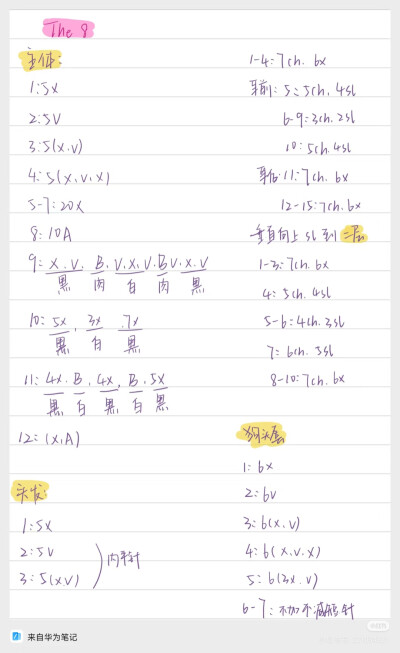 The 8
主体:
1:5X
2:5V
3:5(X.V)
4:5(X.V.X)
5-7:20X
8:10A
9:X.V. B. V.X.V. B V.X.V
黑 肉 白 肉 黑
10:5X, 3X, 7X
黑 白 黑
11:4X. B. 4X. B. 5X
黑 白 黑 白 黑
12:(X,A)
头发:
1:5X
2:5V
3:5(XV)
内半针
1-4:7ch. 6x
耳前:5:5ch. 4sl
6-9:3ch. 2sl
10:5ch.4sl
耳后:11:7ch. 6x
12-15:7ch.6x
垂直向上sl到二层
1-3:7ch.6x
4:5ch.4sl
5-6:4ch.3sl
7:6ch.5sl
8-10:7ch.6x
1:6x
2:6v
3:6(x.v)
4:6(x.v.x)
5:6(3x.v)
6-7:不加不减短针
小红书
来自华为笔记